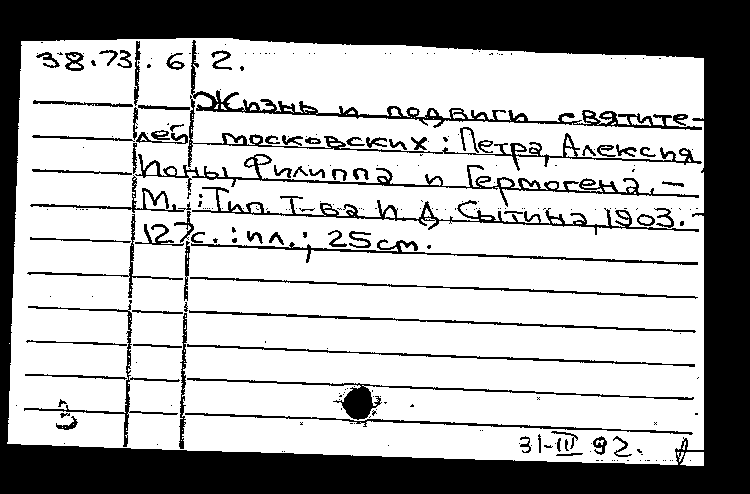 38.73.6.2.
Жизнь и подвиги святите-
лей московских: Петра, Алексия,
Ионы, Филиппа и Гермогена. –
М.: Тип. Т-ва И. Д. Сытина, 1903. –
127с. : ил.; 25см.
3
31-III 92.